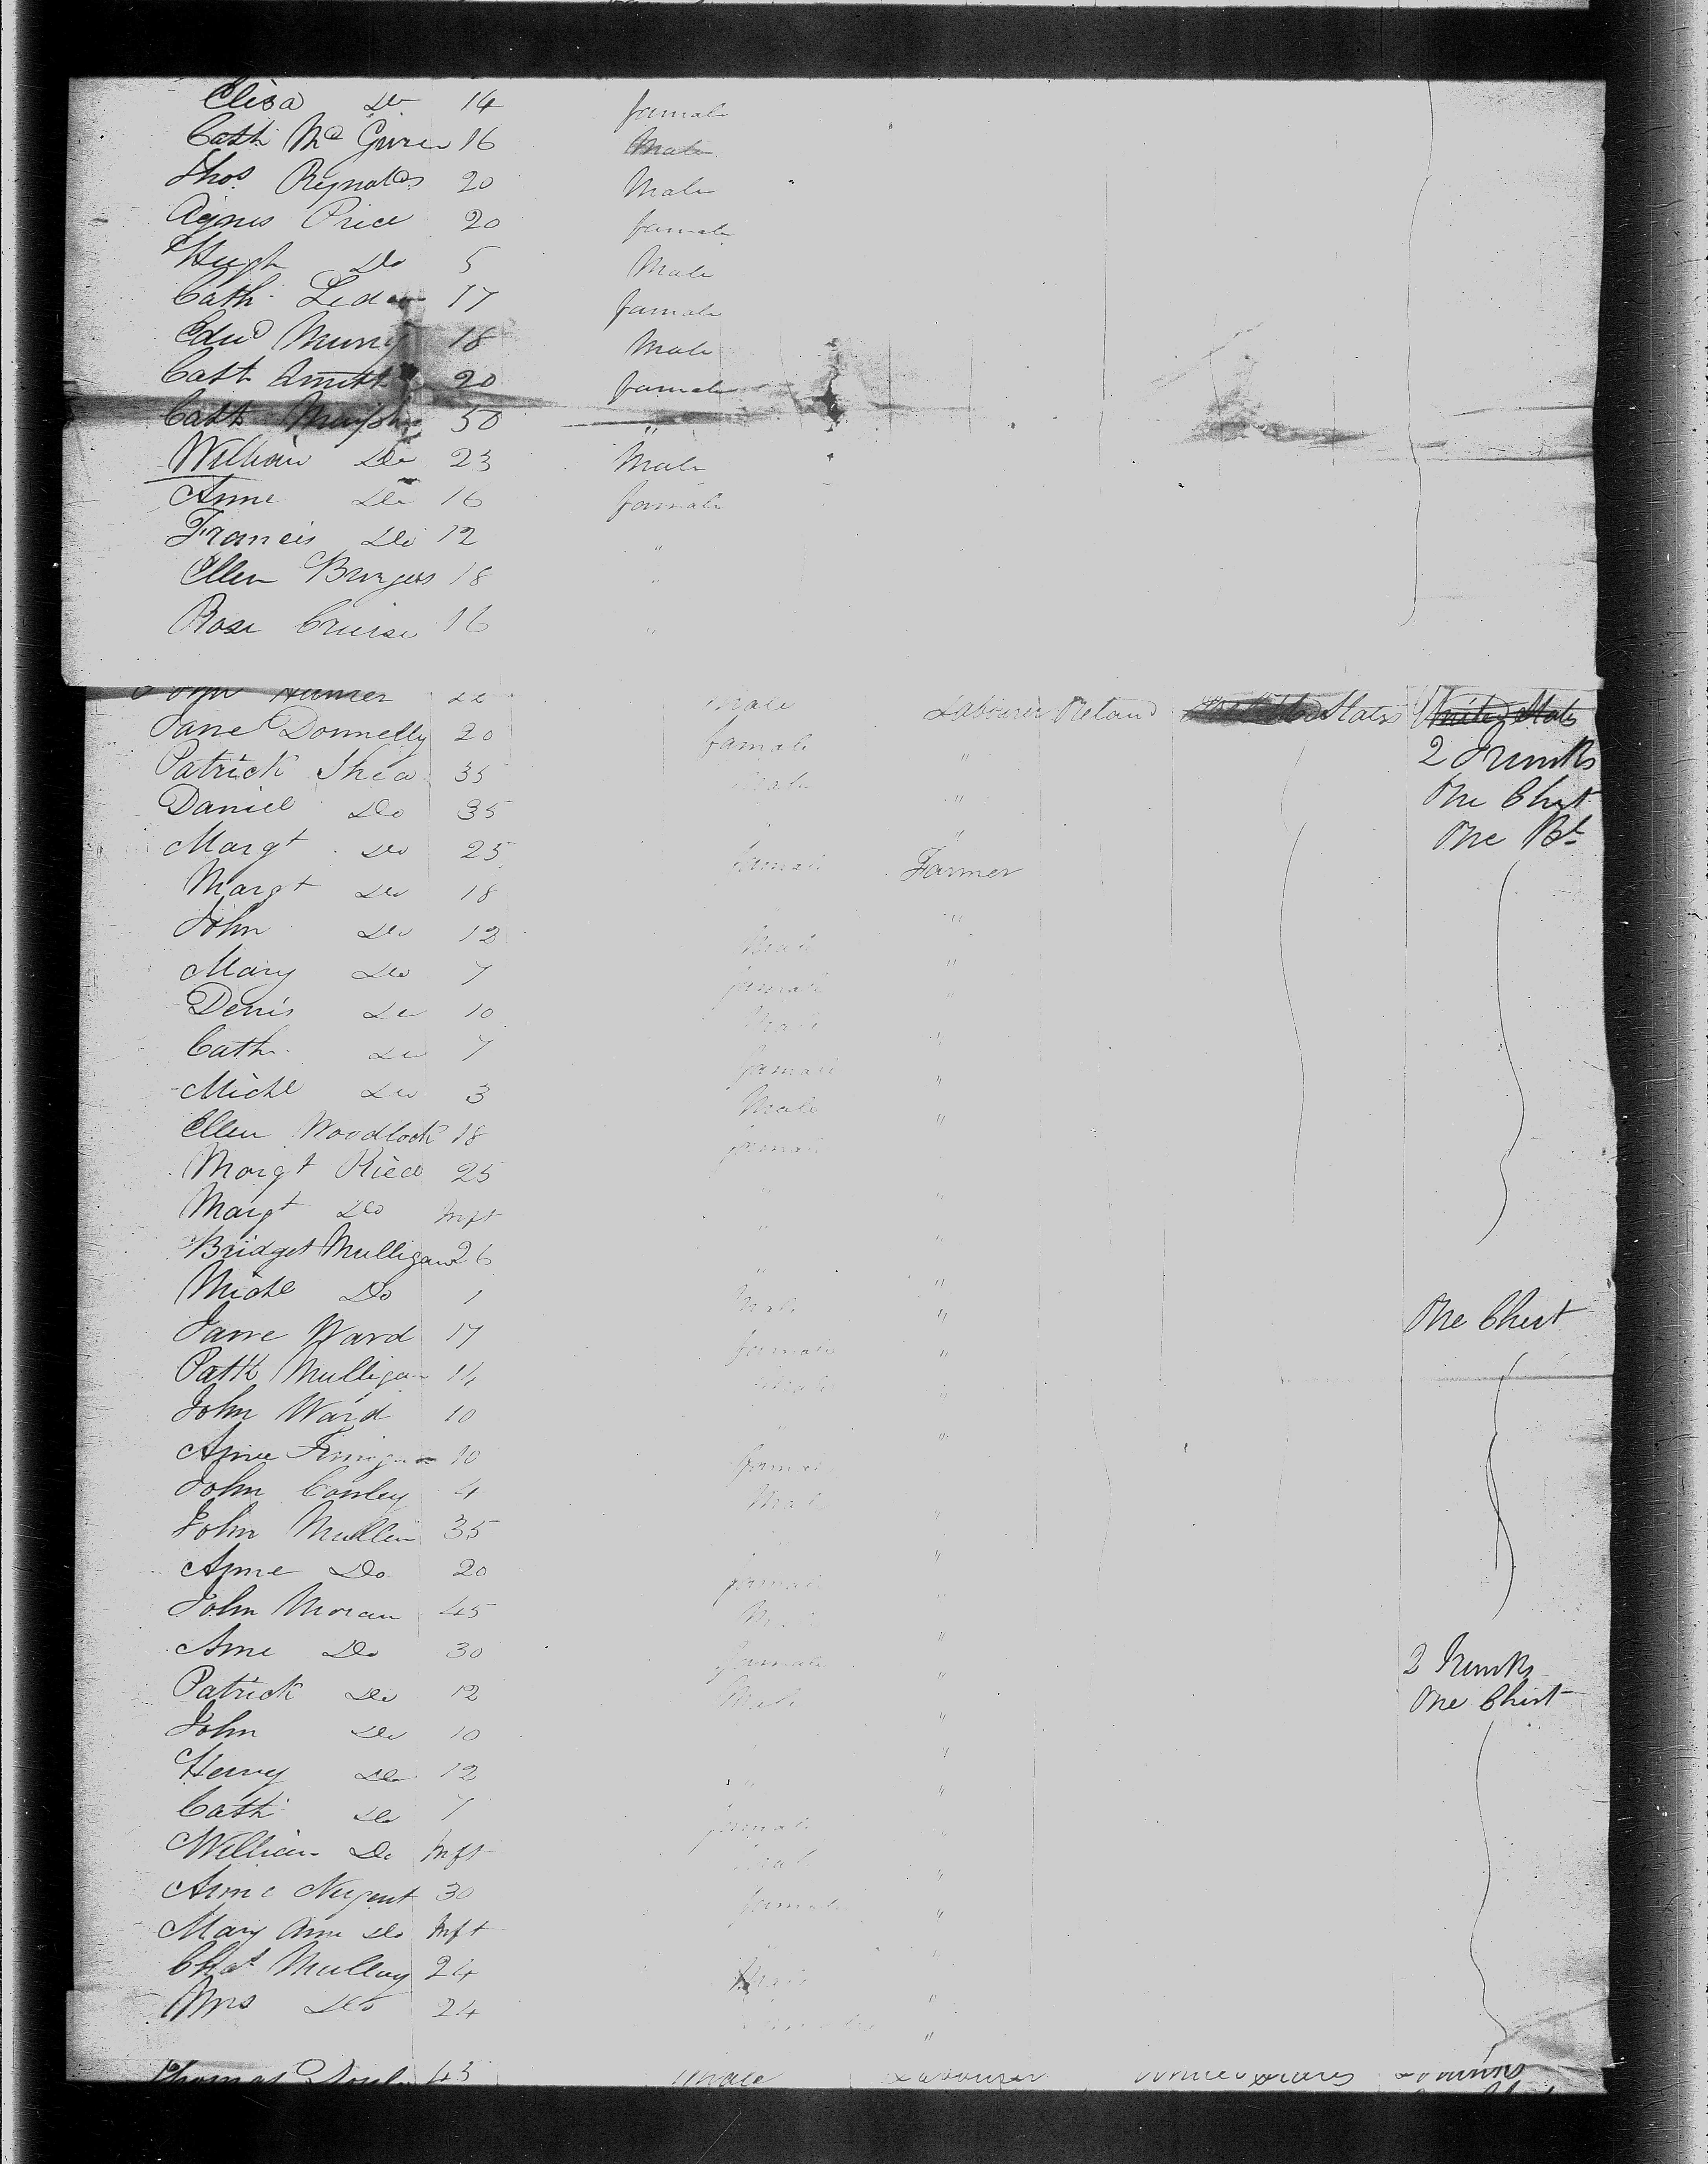 Eliza Do 14 female
Cath Mc Giver 16 Male
Thos Reynolds 20 Male
Agnes Price 20 female
Hugh Do 5 Male
Cath. 17 female
Edwd Murry 18 Male
Cath Smith 20 female
Cath 50 "
William Do 23 Male
Anne Do 16 female
Francis Do 12 "
Ellen Burgess 18 "
Rose Cruise 16 "
John 22 Male Labourer Ireland States United States
Jane Donnelly 20 female " 2 Trunks
Patrick Shea 35 Male " One Chest
Daniel Do 35 " " One Bl
Margt Do 25 female Farmer
Margt Do 18 "
John Do 12 Male "
Mary Do 7 female "
Denis Do 10 Male "
Cath. Do 7 female "
Michl Do 3 Male "
Ellen Woodlock 18 female
Margt Rice 25 " "
Margt Do Inft " "
Bridget Mulligan 26 " "
Michl Do 1 Male " One Chest
Jane Ward 17 female "
Patk Mulligan 14 Male "
John Ward 10 " "
Anne Finigan 10 female
John Conley 4 Male "
John Mullin 35 " "
Anne Do 20 female "
John Moran 45 Male "
Anne Do 30 female " 2 Trunks
Patrick Do 12 Male " One Chest
John Do 10 " "
Henry Do 12 " "
Cath Do 7 female "
William Do Inft Male "
Anne Nugent 30 female "
Mary Ann Do Inft " "
Chas Mulloy 24 Male "
Mrs Do 24 female "
Thomas 43 Male Labourer United States